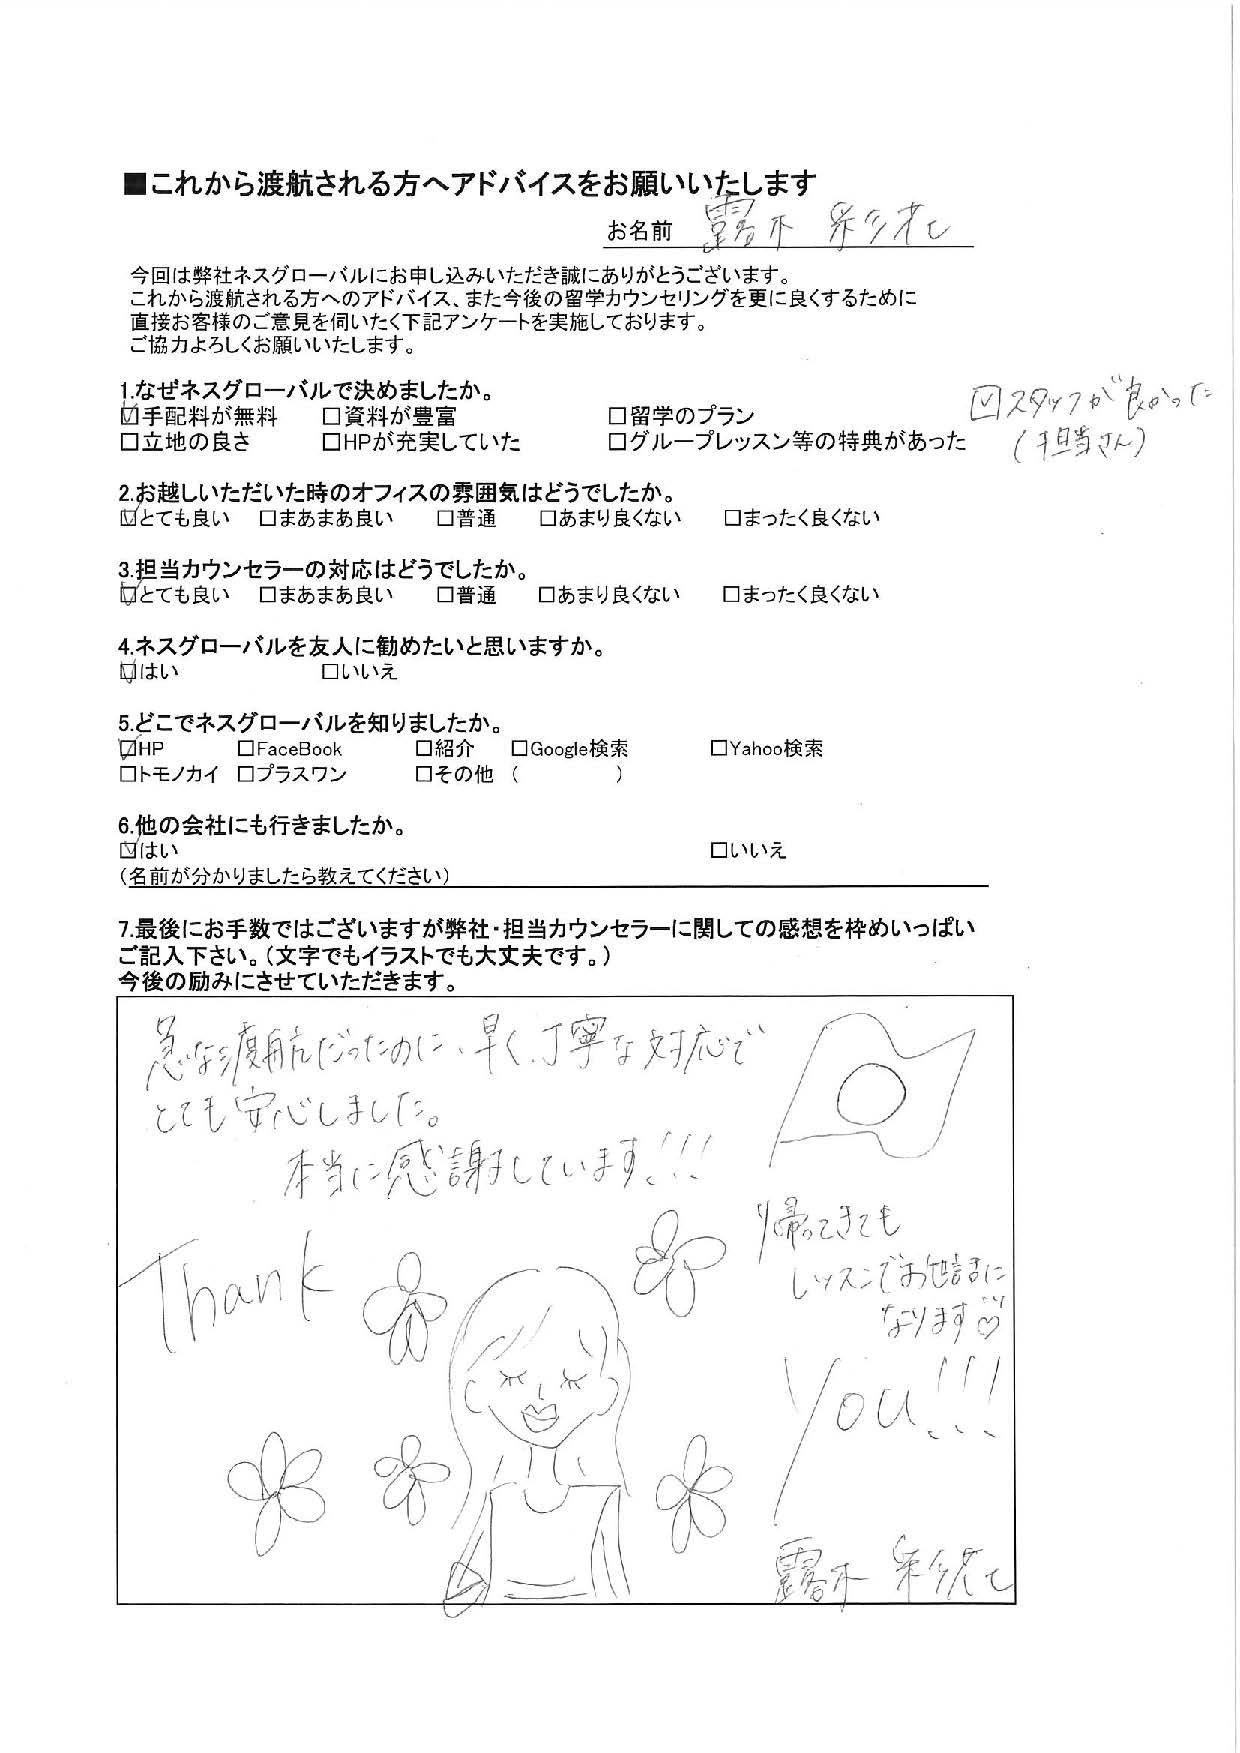 ■これから渡航される方へアドバイスをお願いいたします
お名前 露木 彩花
今回は弊社ネスグローバルにお申し込みいただき誠にありがとうございます。
これから渡航される方へのアドバイス、また今後の留学カウンセリングを更に良くするために
直接お客様のご意見を伺いたく下記アンケートを実施しております。
ご協力よろしくお願いいたします。
1.なぜネスグローバルで決めましたか。
☑手配料が無料 □資料が豊富 □留学のプラン ☑スタッフが良かった
□立地の良さ □HPが充実していた □グループレッスン等の特典があった (担当さん)
2.お越しいただいた時のオフィスの雰囲気はどうでしたか。
☑とても良い □まあまあ良い □普通 □あまり良くない □まったく良くない
3.担当カウンセラーの対応はどうでしたか。
☑とても良い □まあまあ良い □普通 □あまり良くない □まったく良くない
4.ネスグローバルを友人に勧めたいと思いますか。
☑はい □いいえ
5.どこでネスグローバルを知りましたか。
☑HP □FaceBook □紹介 □Google検索 □Yahoo検索
□トモノカイ □プラスワン □その他 ( )
6.他の会社にも行きましたか。
☑はい □いいえ
(名前が分かりましたら教えてください)
7.最後にお手数ではございますが弊社・担当カウンセラーに関しての感想を枠めいっぱい
ご記入下さい。(文字でもイラストでも大丈夫です。)
今後の励みにさせていただきます。
急な渡航だったのに、早く、丁寧な対応で
とても安心しました。
本当に感謝しています!!!
帰ってきても
レッスンでお世話に
なります♡
Thank
You!!!
露木 彩花